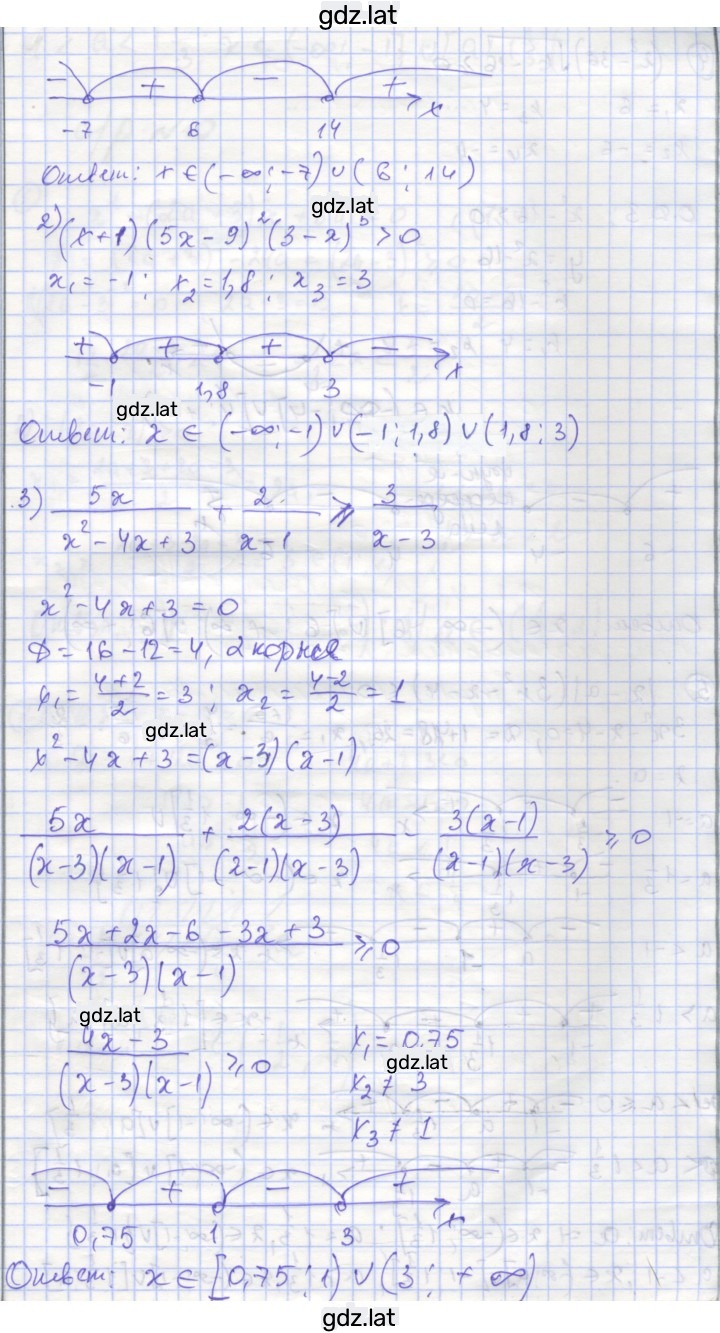 gdz.lat
− + − + x
-7 6 14
Ответ: x ∈ (-∞; -7) ∪ (6; 14)
gdz.lat
2) (x+1)(5x-9)²(3-x)⁵ > 0
x₁ = -1; x₂ = 1,8; x₃ = 3
+ + + − x
-1 1,8 3
gdz.lat
Ответ: x ∈ (-∞; -1) ∪ (-1; 1,8) ∪ (1,8; 3)
3) 5x/(x²-4x+3) + 2/(x-1) ≥ 3/(x-3)
x²-4x+3 = 0
D = 16-12 = 4, 2 корня
x₁ = (4+2)/2 = 3; x₂ = (4-2)/2 = 1
gdz.lat
x²-4x+3 = (x-3)(x-1)
5x/((x-3)(x-1)) + 2(x-3)/((x-1)(x-3)) - 3(x-1)/((x-1)(x-3)) ≥ 0
(5x+2x-6-3x+3)/((x-3)(x-1)) ≥ 0
gdz.lat
(4x-3)/((x-3)(x-1)) ≥ 0
x₁ = 0.75
gdz.lat
x₂ ≠ 3
x₃ ≠ 1
− + − + x
0,75 1 3
Ответ: x ∈ [0,75; 1) ∪ (3; +∞)
gdz.lat